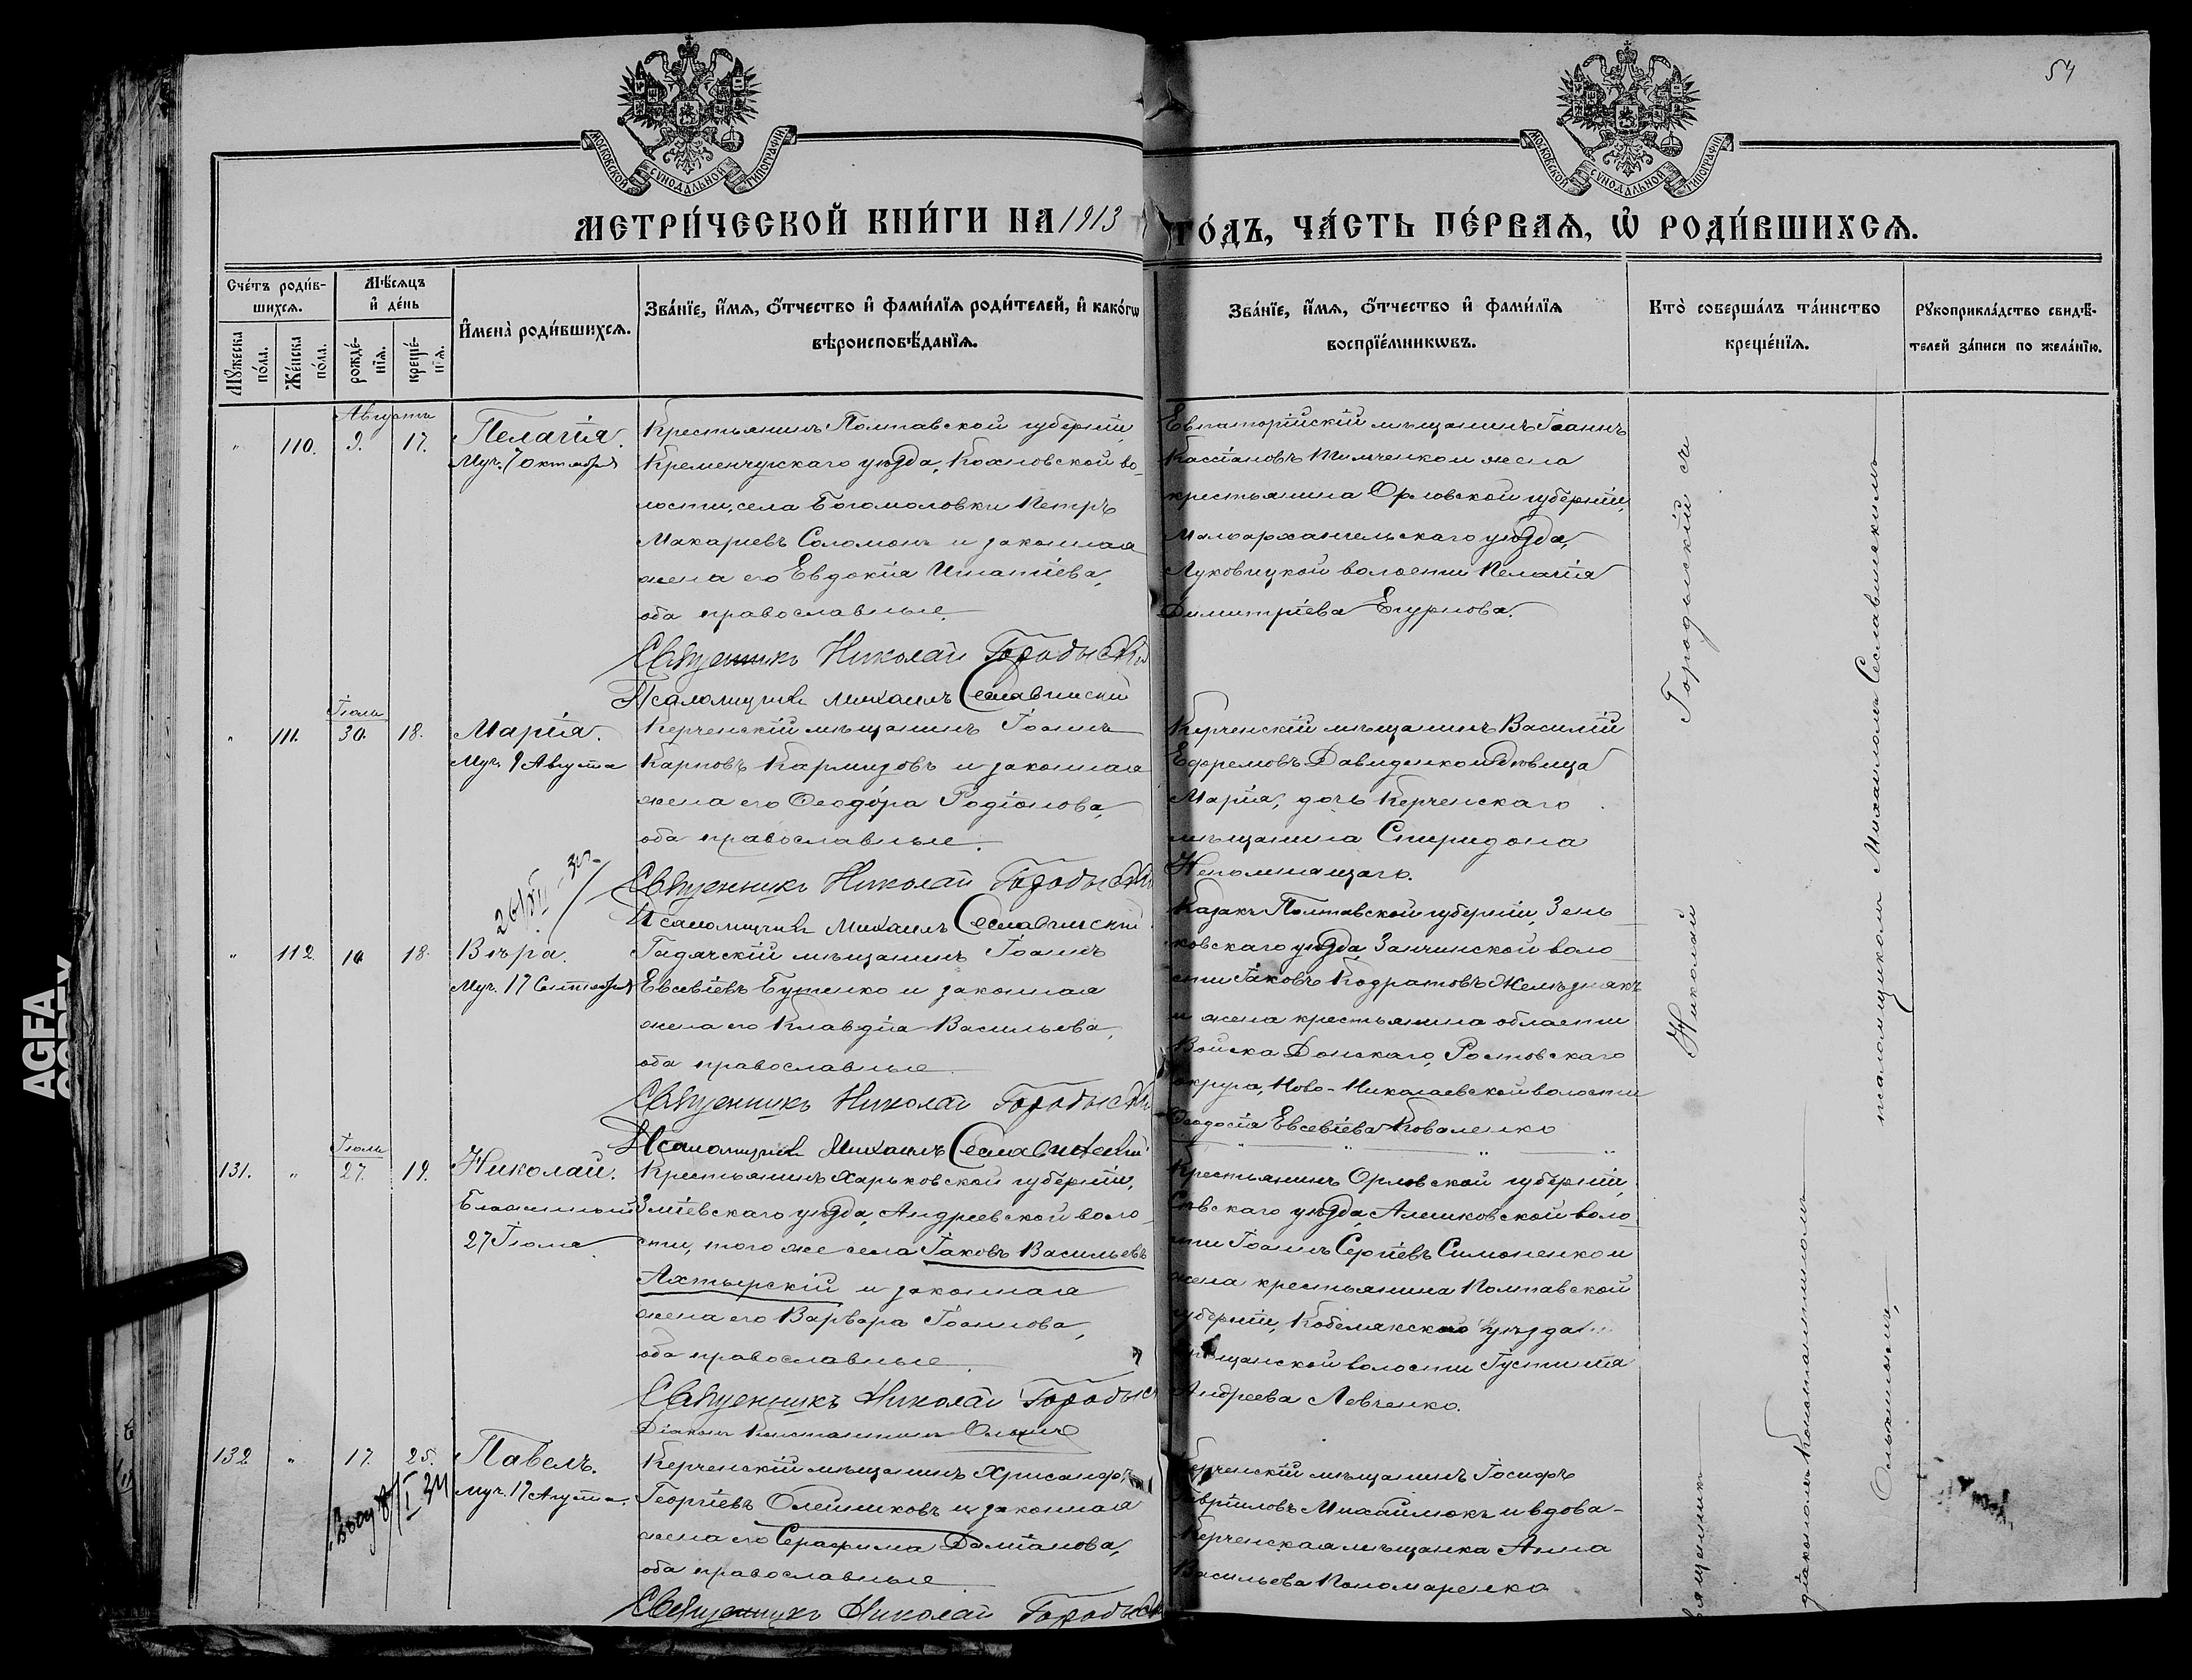 54
МОСКОВСКОЙ СУНОДАЛЬНОЙ ТИПОГРАФІИ
МОСКОВСКОЙ СУНОДАЛЬНОЙ ТИПОГРАФІИ
МЕТРИ́ЧЕСКОЙ КНИ́ГИ НА 1913 ГО́ДЪ, ЧА́СТЬ ПЕ́РВАѦ, Ѡ҆ РОДИ́ВШИХСѦ.
Сче́тъ роди́в-
шихсѧ.
Мꙋ́жеска по́ла.
Же́нска по́ла.
Мѣ́сѧцъ
и҆ де́нь
рожде́-нїѧ.
креще́-нїѧ.
И҆мена̀ роди́вшихсѧ.
Зва́нїе, и҆́мѧ, ѻ҆́тчество и҆ фами́лїѧ роди́телей, и҆ како́гѡ
вѣроисповѣ́данїѧ.
Зва́нїе, и҆́мѧ, ѻ҆́тчество и҆ фами́лїѧ
воспрїе́мникѡвъ.
Кто̀ соверша́лъ та́инство
креще́нїѧ.
Рꙋкоприкла́дство свидѣ́-
телей за́писи по жела́нїю.
Августъ
" 110. 9. 17. Пелагія.
Муч. 7 октября
Крестьянинъ Полтавской губерніи,
Кременчугскаго уѣзда, Кохновской во-
лости, села Богомоловки Петръ
Макариевъ Соломонъ и законная
жена его Евдокія Игнатіева,
оба православные.
Священникъ Николай Городыскій
Псаломщикъ Михаилъ Сеславинскій
Евпаторійскій мѣщанинъ Іоаннъ
Кассіановъ Тимченко и жена
крестьянина Орловской губерніи,
Малоархангельскаго уѣзда,
Луковицкой волости Пелагія
Димитріева Егурнова.
Іюль
" 111. 30. 18. Марія.
Муч. 9 Августа
Керченскій мѣщанинъ Іоаннъ
Карповъ Кармизовъ и законная
жена его Ѳеодора Родіонова,
оба православные.
Священникъ Николай Городыскій
Псаломщикъ Михаилъ Сеславинскій
Керченскій мѣщанинъ Василій
Ефремовъ Давиденко и дѣвица
Марія, дочь Керченскаго
мѣщанина Спиридона
Непомнящаго.
" 112 10 18. Вѣра.
Муч. 17 Сентября
Гадячскій мѣщанинъ Іоаннъ
Евсевіевъ Бутенко и законная
жена его Клавдія Васильева,
оба православные
Священникъ Николай Городыскій
Псаломщикъ Михаилъ Сеславинскій
Казакъ Полтавской губерніи, Зень
ковскаго уѣзда, воло
сти Іаковъ Кодратовъ Желѣзнякъ
и жена крестьянина области
Войска Донскаго, Ростовскаго
округа, Ново-Николаевской волости
Ѳеодосія Евсевіева Коваленко
Іюль
131. " 27. 19. Николай.
Блаженный
27 Іюля
Крестьянинъ Харьковской губерніи,
Зміевскаго уѣзда, Андреевской воло-
сти, того же села Іаковъ Васильевъ
Ахтырскій и законная
жена его Варвара Іоаннова,
оба православные.
Священникъ Николай Городыск
Діаконъ Константинъ
Крестьянинъ Орловской губерніи,
Сѣвскаго уѣзда, Алешковской воло
сти Іоаннъ Сергіевъ Симоненко и
жена крестьянина Полтавской
губерніи, Кобелякскаго уѣзда
волости Іустинія
Андреева Левченко.
132 " 17. 25. Павелъ.
муч. 17 Августа.
Керченскій мѣщанинъ Хрисанфъ
Георгіевъ Олейниковъ и законная
жена его Серафима Даміанова,
оба православные
Священникъ Николай Городыск
Керченскій мѣщанинъ Іосифъ
Гавріиловъ Михайлюкъ и вдова-
Керченская мѣщанка Анна
Васильева Пономаренко
Священникъ Николай Городыскій съ
діакономъ Константиномъ
псаломщикомъ Михаиломъ Сеславинскимъ
AGFA